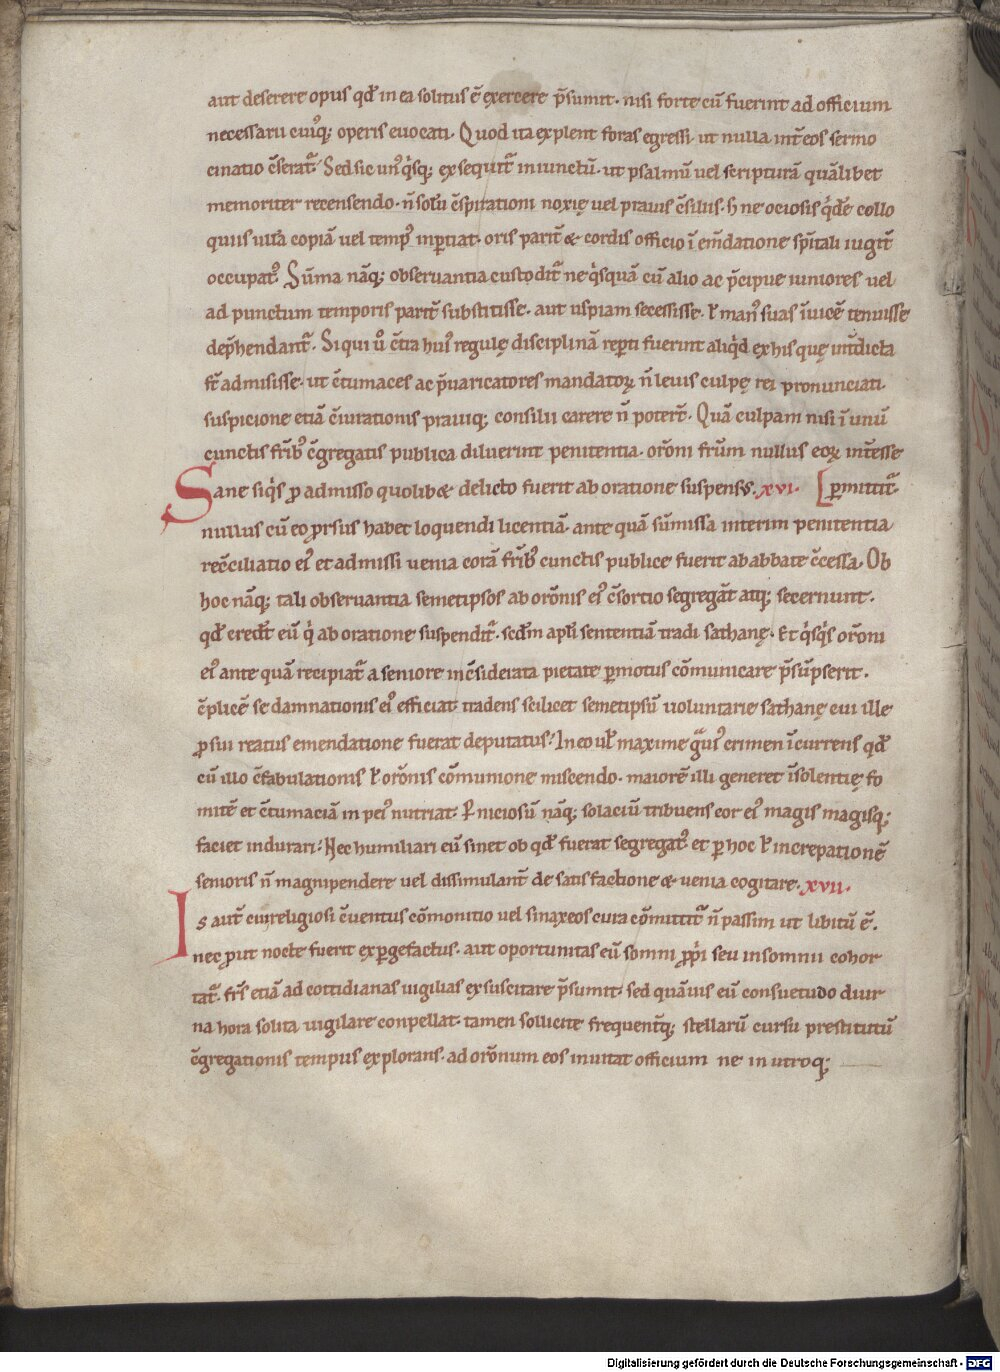 aut deserere opus qđ in ea solitus ē exercere p̄sumit. nisi forte cū fuerint ad officium
necessarii cuiꝰq; operis euocati. Quod ita explent foras egressi. ut nulla int̄ eos sermo
cinatio c̄serat᷑. Sed sic unꝰq̇sq; exsequit᷑ iniunctū. ut psalmū uel scripturā quālibet
memoriter recensendo. n̄ solū c̄spirationi noxię uel prauis c̄siliis. ꜩ ne ociosis q̇dē collo
quiis ullā copiā uel tempꝰ inꝑtiat. oris parit̄ & cordis officio ī em̄datione sp̄itali iugit̄
occupatꝰ. Sūma nāq; obseruantia custodit᷑ ne q̇squā cū alio ac p̄cipue iuniores uel
ad punctum temporis parit̄ substitisse. aut uspiam secessisse. ł manꝰ suas īuicē tenuisse
dep̄hendant᷑. Siqui u̾o c̄tra huiꝰ regulę disciplinā reꝑti fuerint aliq̇d ex his quę int̄dicta
s̄t admisisse. ut c̄tumaces ac p̄uaricatores mandatoꝝ n̄ leuis culpę rei pronunciati.
suspicione etiā c̄iurationis prauiq; consilii carere n̄ potert̄. Quā culpam nisi ī unū
cunctis fr̄ibꝰ c̄gregatis publica diluerint penitentia. orōni frūm nullus eoꝝ int̄esse
Sane siq̇s ꝓ admisso quolib& delicto fuerit ab oratione suspensꝰs. xvi. [ꝑmittit᷑.
nullus cū eo ꝓrsus habet loquendi licentiā. ante quā sūmissa interim penitentia
rec̄ciliatio eiꝰ et admissi uenia corā fr̄ibꝰ cunctis publice fuerit ab abbate c̄cessa. Ob
hoc nāq; tali obseruantia semetipsos ab orōnis eiꝰ c̄sortio segregāt atq; secernunt.
qđ credt̄ eū q̇ ab oratione suspendit᷑. scđm apl̄i sententiā tradi sathanę. Et q̇sq̇s orōni
eiꝰ ante quā recipiat᷑ a seniore inc̄siderata pietate ꝑmotus cōmunicare p̄sūpserit.
c̄plicē se damnationis eiꝰ efficiat tradens scilicet semetipsū uoluntarie sathanę cui ille
ꝓ sui reatus emendatione fuerat deputatus. In eo ul̄ maxime g̃uiꝰ crimen īcurrens qđ
cū illo c̄fabulationis ł orōnis cōmunione miscendo. maiorē illi generet īsolentię fo
mitē et c̄tumaciā in peiꝰ nutriat. Ꝑniciosū nāq; solaciū tribuens cor eiꝰ magis magisq;
faciet indurari. Nec humiliari eū sinet ob qđ fuerat segregatꝰ. et ꝑ hoc ł increpationē
senioris n̄ magnipendere uel dissimulant̄ de satisfactione & uenia cogitare. xvii.
Is aut̄ cui religiosi c̄uentus cōmonitio uel sinaxeos cura cōmittit᷑ n̄ passim ut libitū ē.
nec ꝓut nocte fuerit exꝑgefactus. aut oportunitas eū somni ꝓpi̇ seu insomnii cohor
tat᷑. fr̄s etiā ad cottidianas uigilias exsuscitare p̄sumit. sed quāuis eū consuetudo diur
na hora solita uigilare conpellat. tamen sollicite frequent̄q; stellarū cursu prestitutū
c̄gregationis tempus explorans. ad orōnum eos inuitat officium ne in utroq;
Digitalisierung gefördert durch die Deutsche Forschungsgemeinschaft - DFG